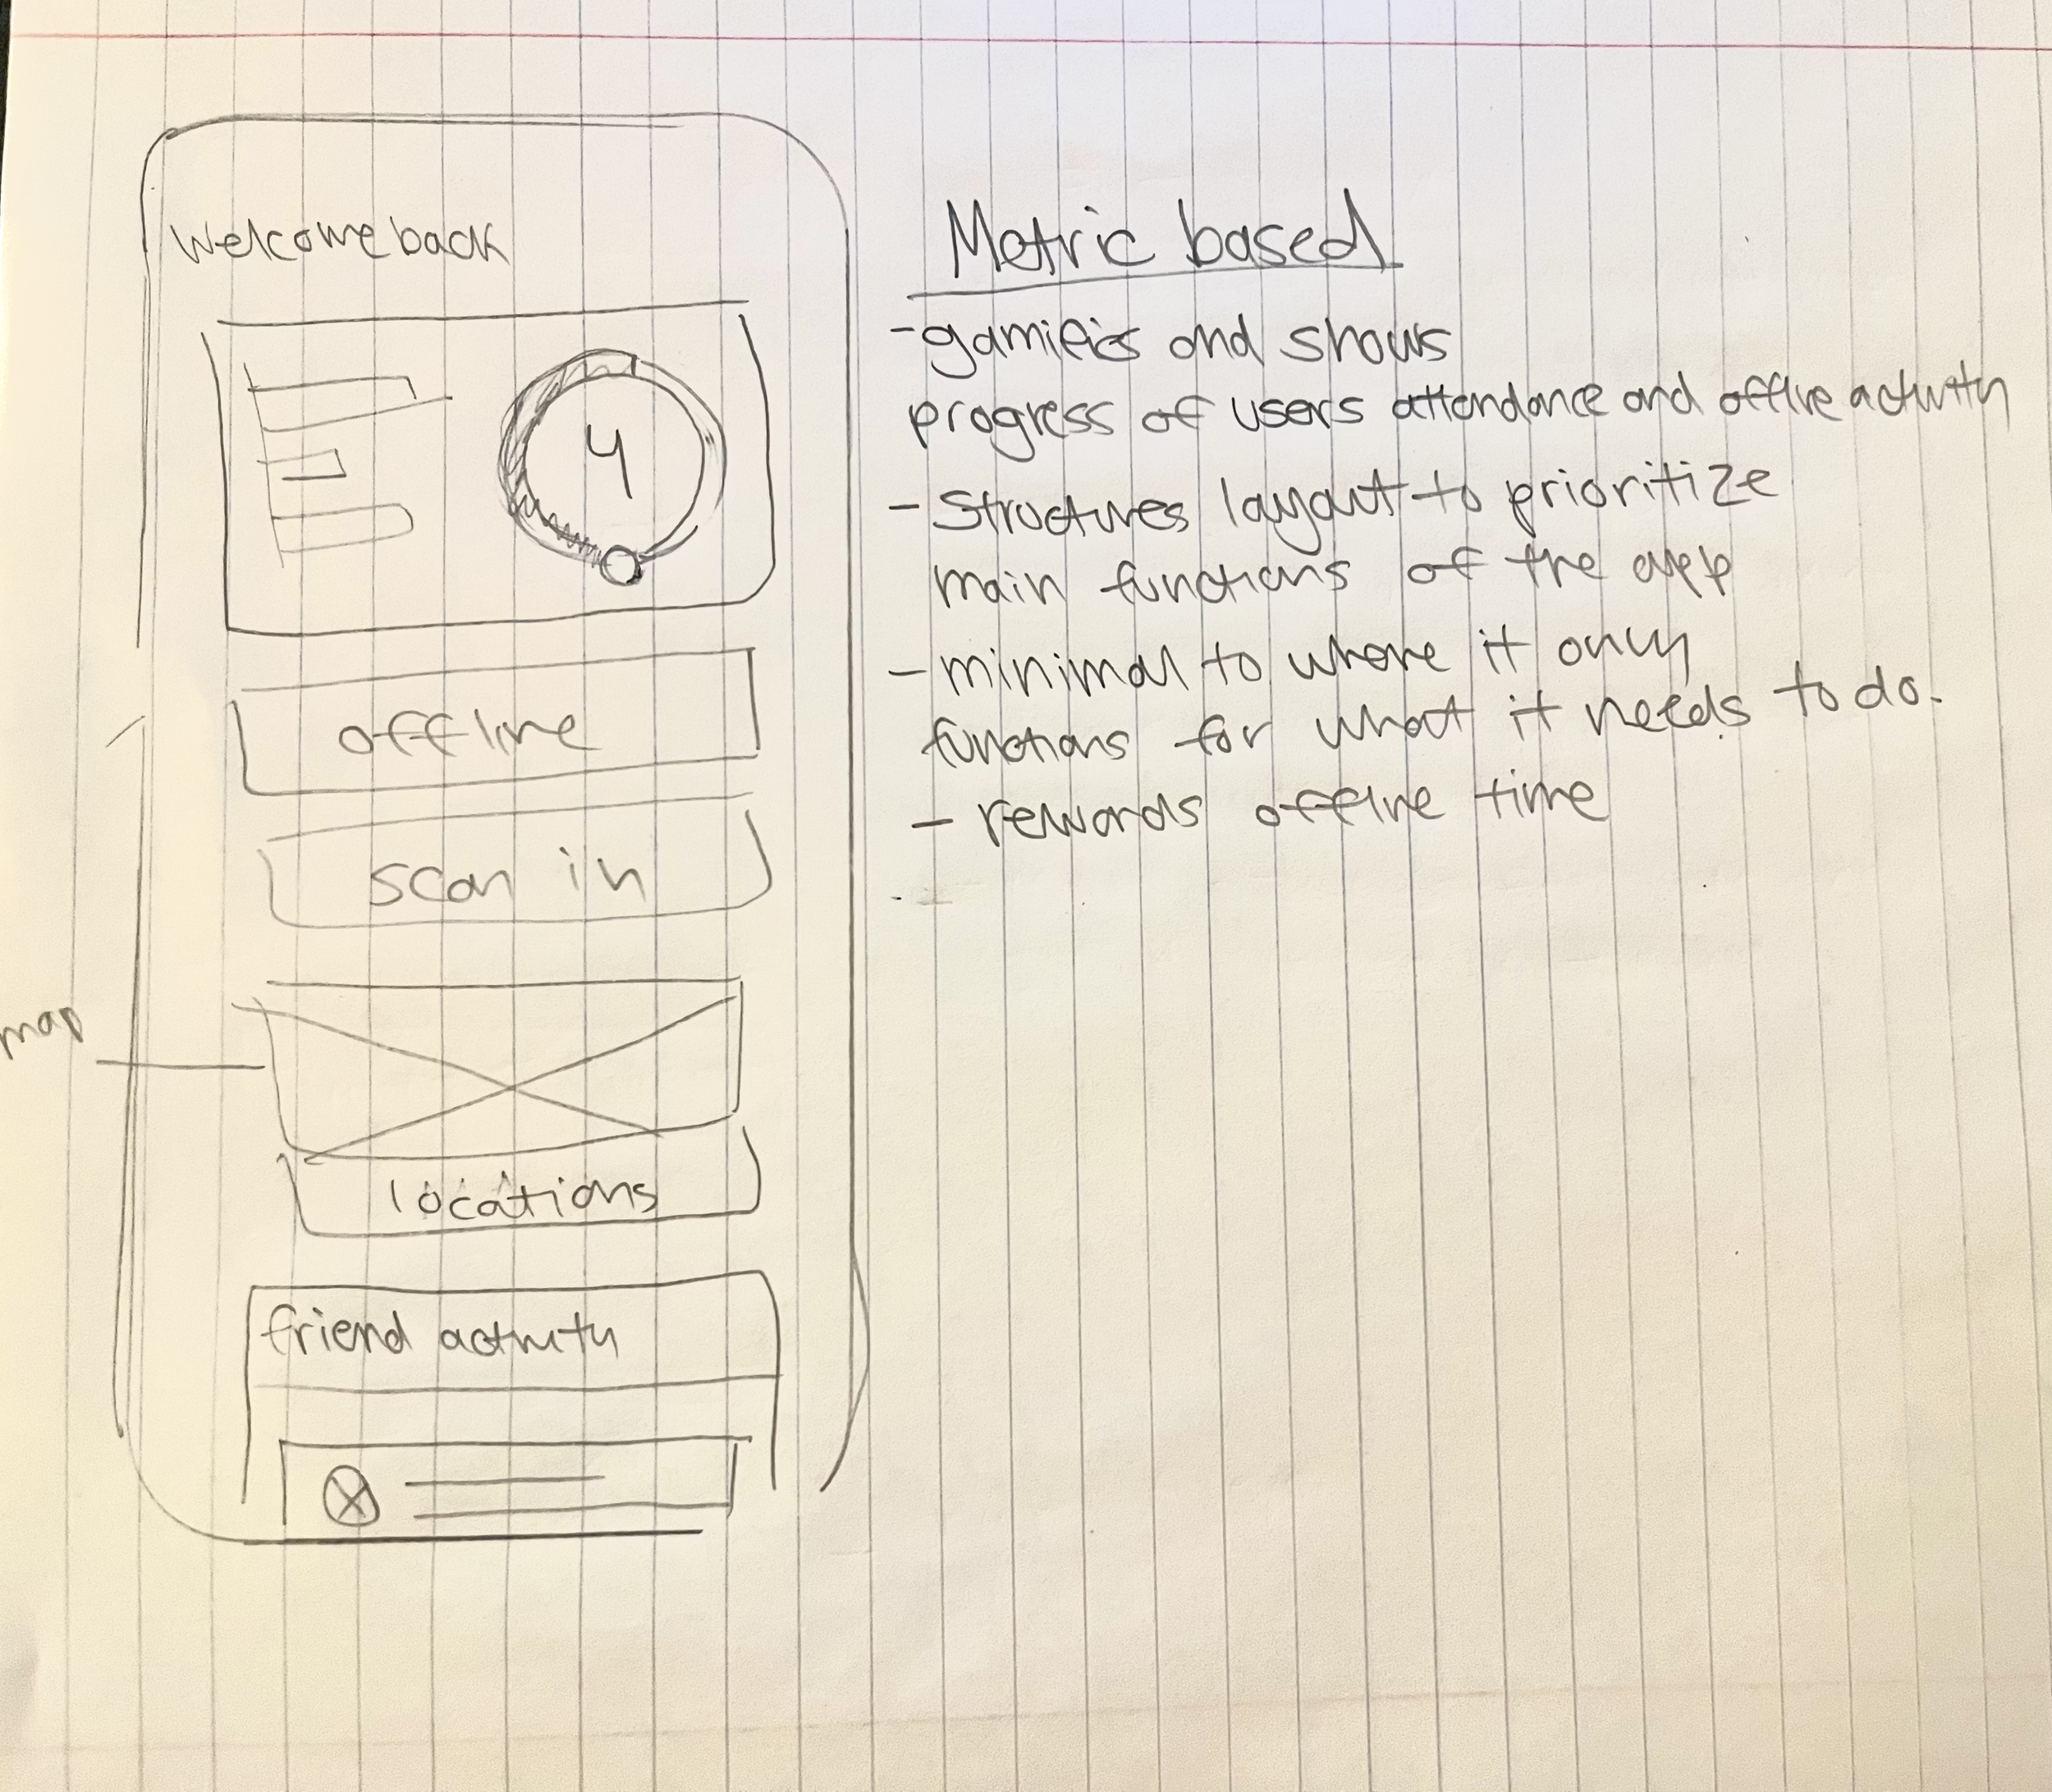 Welcome back
4
offline
scan in
map
locations
friend activity
Metric based
- gamifies and shows
progress of users attendance and offline activity
- Structures layout to prioritize
main functions of the app
- minimal to where it only
functions for what it needs to do.
- rewards offline time